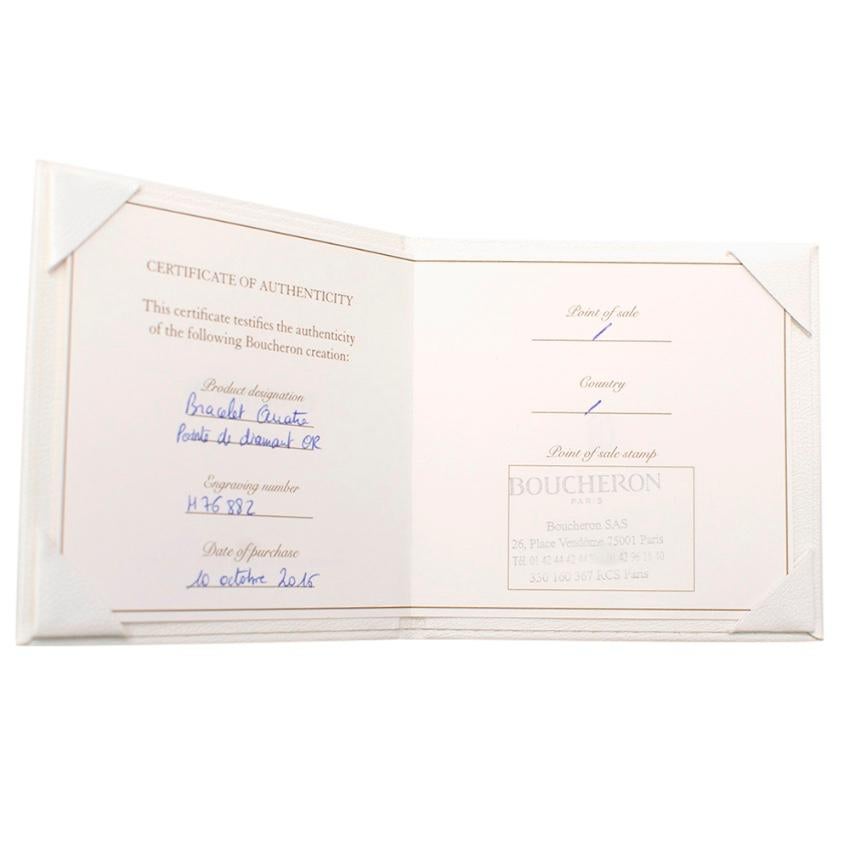 CERTIFICATE OF AUTHENTICITY
This certificate testifies the authenticity
of the following Boucheron creation:
Product designation
Bracelet Quatre
Pointe de diamant OR
Engraving number
H76882
Date of purchase
10 octobre 2015
Point of sale
/
Country
/
Point of sale stamp
BOUCHERON
PARIS
Boucheron SAS
26, Place Vendôme 75001 Paris
Tél. 01 42 44 42 44 01 42 96
330 160 367 RCS Paris